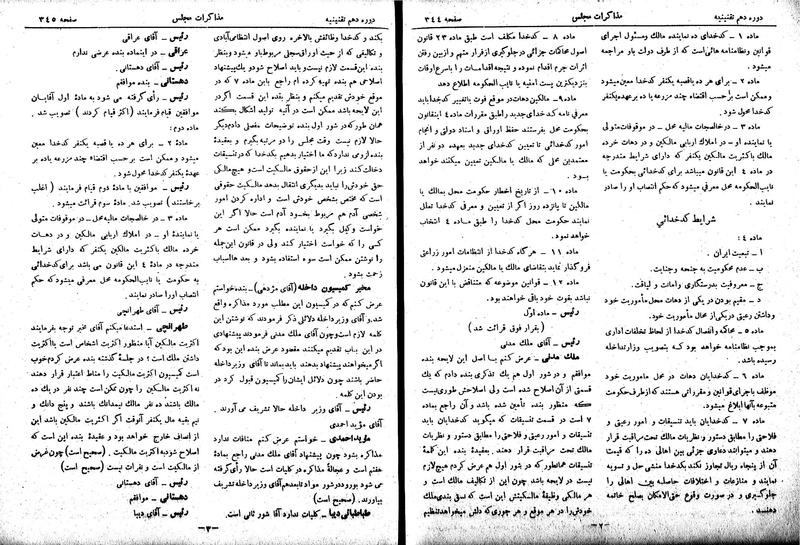 دوره دهم تقنینیه
مذاکرات مجلس
صفحه ۳۴۴
ماده ۱ – کدخدای ده نماینده مالک ومسئول اجرای
قوانین ونظامنامه هائی است که از طرف دولت باو مراجعه
میشود.
ماده ۲ – برای هر ده یاقصبه یکنفر کدخدا معین میشود
وممکن است بر حسب اقتضاء چند مزرعه یا ده برعهده یکنفر
کدخدا محول شود.
ماده ۳ – درخالصجات مالیه محل – در موقوفات متولی
یا نماینده او – در املاك اربابی مالکین و در دهات خرده
مالك باکثریت مالکین یکنفر که دارای شرایط مندرجه
در ماده ٤ این قانون میباشد برای کدخدائی بحکومت یا
نایب‌الحکومه محل معرفی میشود که حکم انتصاب او را صادر
نمایند.
شرایط کدخدائی
ماده ٤ :
ا – تبعیت ایران .
ب – عدم محکومیت به جنحه وجنایت.
ج – معروفیت بدرستکاری وامانت و لیاقت.
د – مقیم بودن در یکی از دهات محل مأموریت خود
وداشتن رعیتی دریکی از محال مأموریت خود.
ماده ٥ – محاکمه وانفصال کدخدا از لحاظ تخلفات اداری
بموجب نظامنامه خواهد بود که بتصویب وزارتداخله
رسیده باشد.
ماده ٦ – کدخدایان دهات در محل ماموریت خود
موظف باجرای قوانین و مقرراتی هستند که از طرف حکومت
متبوعه بآنها ابلاغ میشود.
ماده ۷ – کدخدایان باید تنسیقات و امور رعیتی و
فلاحتی را مطابق دستور و نظریات مالك تحت مراقبت قرار
دهند و میتوانند دعاوی جزئی بین اهالی ده را که قیمت
آن از پنجاه ریال تجاوز نکند بکدخدا منشی حل و تسویه
نمایند و منازعات و اختلافات حاصله بین اهالی را
جلوگیری و در صورت وقوع حتی‌الامکان بصلح خاتمه
دهند.
ماده ۸ – کدخدا مکلف است طبق ماده ۲۳ قانون
اصول محاکمات جزائی درجلوگیری از فرار متهم و از بین رفتن
اثرات جرم اقدام نموده و نتیجه اقدامات را باسرع اوقات
بنزدیکترین پست امنیه یا نایب الحکومه اطلاع دهد
ماده ۹ – مالکین دهات در موقع فوت یاتغییر کدخدا باید
تعرفه نامه کدخدای جدید را طبق مقررات ماده ٤ اینقانون
بحکومت محل بفرستند حفظ اوراق و اسناد دولتی و انجام
امور کدخدائی تا تعیین کدخدای جدید بعهده دو نفر از
معتمدین محلی که مالك یا مالکین تعیین میکنند خواهد
بود.
ماده ۱۰ – از تاریخ اخطار حکومت محل بمالك یا
مالکین تا پانزده روز اگر از تعیین و معرفی کدخدا تعلل
نمایند حکومت محل کدخدا را طبق ماده ٤ انتخاب
خواهد نمود.
ماده ۱۱ – هر گاه کدخدا از انتظامات امور زراعتی
فروگذار نماید بتقاضای مالك یا مالکین منعزل میشود.
ماده ۱۲ – قوانین موضوعه که متناقض با این قانون
نباشد بقوت خود باقی خواهد بود.
رئیس – ماده اول
(بقرار فوق قرائت شد)
رئیس – آقای ملك مدنی
ملك مدنی – عرض کنم بنده با اصل این لایحه
موافقم و در شور اول هم يك تذکری بنده دادم که يك
قسمتی از آن اصلاح شده است ولی اصلاحش طوری نیست
که منظور بنده تأمین شده باشد و آن راجع بماده
۷ است در قسمت تنسیقات که میگوید کدخدایان باید
تنسیقات و امور رعیتی و فلاحتی را مطابق دستور و نظریات
مالك تحت مراقبت قرار دهند. بعقیدۀ بنده این کلمۀ
تنسیقات همانطور که در شور اول هم عرض کردم هیچ لازم
نیست در لایحه باشد چون این از تکالیف مالك است و
هر مالکی وظیفۀ مالکیتش این است که نسق بندی ملك
خودش را در هر موقع و هر جوری که دلش میخواهد تنظیم
– ۲ –
دوره دهم تقنینیه
مذاکرات مجلس
صفحه ۳٤٥
بکند و کدخدا وظائفش بالاخره روی اصول انتظامی آبادی
و تکالیفی که از حیث اوراق سجلی مربوط باو میشود وبنظر
بنده این قسمت لازم نیست و باید اصلاح شود و يك پیشنهاد
اصلاحی هم بنده تهیه کرده ام راجع باین ماده ۷ که در
موقع خودش تقدیم میکنم و بنظر بنده این قسمت اگر در
این لایحه باشد ممکن است در آتیه تولید اشکال بکند
همان طور که در شور اول بنده توضیحات مفصلی دادم دیگر
حالا لازم نیست وقت مجلس را در مرتبه بگیرم و بعقیدۀ
بنده لزومی ندارد که ما اختیار بدهیم بکدخدا که در تنسیقات
دخالت کند زیرا این از حقوق مالکیت است و هیچ مالکی
حق خودش را نباید بدیگری انتقال بدهد مالکیت حقوقی
است که مختص بشخص خودش است و اداره کردن امور
شخصی آدم هم مربوط بخود آدم است حالا اگر این
خواست وکیل بگیرد یا نماینده بگیرد ممکن است هر
کسی را که خواست اختیار کند ولی در قانون این جمله
را نوشتن ممکن است سوء استفاده بشود و بعد ها اسباب
زحمت بشود.
مخبر کمیسیون داخله (آقای مژدهی) – بنده خواستم
عرض کنم که در کمیسیون این مطلب مورد مذاکره واقع
شد، و آقای وزیر داخله دلائلی ذکر فرمودند که نوشتن این
کلمه لازم است و چون آقای ملك مدنی فرمودند پیشنهادی
در این باب تقدیم میکنند مقصود عرض بنده این بود که
اگر میخواهند پیشنهاد بدهند باید بماند تا آقای وزیر داخله
حاضر باشند چون دلائل ایشان را کمیسیون قبول کرد در
بودن این کلمه.
رئیس – آقای وزیر داخله حالا تشریف می آورند.
آقای مؤید احمدی
مؤید احمدی – خواستم عرض کنم منافات ندارد
مذاکره بشود چون پیشنهاد آقای ملك مدنی راجع بمادۀ
هفتم است و عجالة مذاکره در کلیات است حالا رأی گرفته
می شود بورود در شور مواد تا بعد هم آقای وزیر داخله تشریف
بیاورند. (صحیح است)
طباطبائی دیبا – کلیات ندارد آقا شور ثانی است.
رئیس – آقای عراقی
عراقی – در اینماده بنده عرضی ندارم
رئیس – آقای دهستانی.
دهستانی – بنده موافقم
رئیس – رأی گرفته می شود به مادۀ اول آقایان
موافقین قیام فرمایند (اکثر قیام کردند) تصویب شد.
ماده دوم:
مادۀ ۲ – برای هر ده یا قصبه یکنفر کدخدا معین
میشود وممکن است بر حسب اقتضاء چند مزرعه یا ده بر
عهدۀ یکنفر کدخدا محول شود.
رئیس – موافقین با مادۀ دوم قیام فرمایند ( اغلب
برخاستند) تصویب شد. مادۀ سوم قرائت میشود.
ماده ۳ – در خالصجات مالیه محل – در موقوفات متولی
یا نمایندۀ او – در املاك اربابی مالکین – و در دهات
خرده مالك باکثریت مالکین یکنفر که دارای شرایط
مندرجه در مادۀ ٤ این قانون می باشد برای کدخدائی
به حکومت یا نایب‌الحکومه محل معرفی میشود که حکم
انتصاب او را صادر نمایند.
رئیس – آقای طهرانچی
طهرانچی – استدعا میکنم آقای مخبر توجه بفرمایند
اکثریت مالکین آیا منظور اکثریت اشخاص است یا اکثریت
داشتن ملك است؟ در جلسۀ گذشته بنده عرض کردم خوب
است کمیسیون اکثریت مالکیت را مناط اعتبار قرار دهند
نه اکثریت مالکین را چون ممکن است چند نفر در يك ده
مالك باشند ده نفر مالك نیمدانك باشند و پنج دانك و
نیم بقیه مال یکنفر آنوقت اگر اکثریت مالکین باشد این
از انصاف خارج خواهد بود و عقیدۀ بنده این است که
اصلاح شود به اکثریت مالکیت. (صحیح است) چون غرض
از مالکیت است و نفرات نیست (صحیح است)
رئیس – آقای دهستانی
دهستانی – موافقم
رئیس – آقای دیبا
– ۳ –